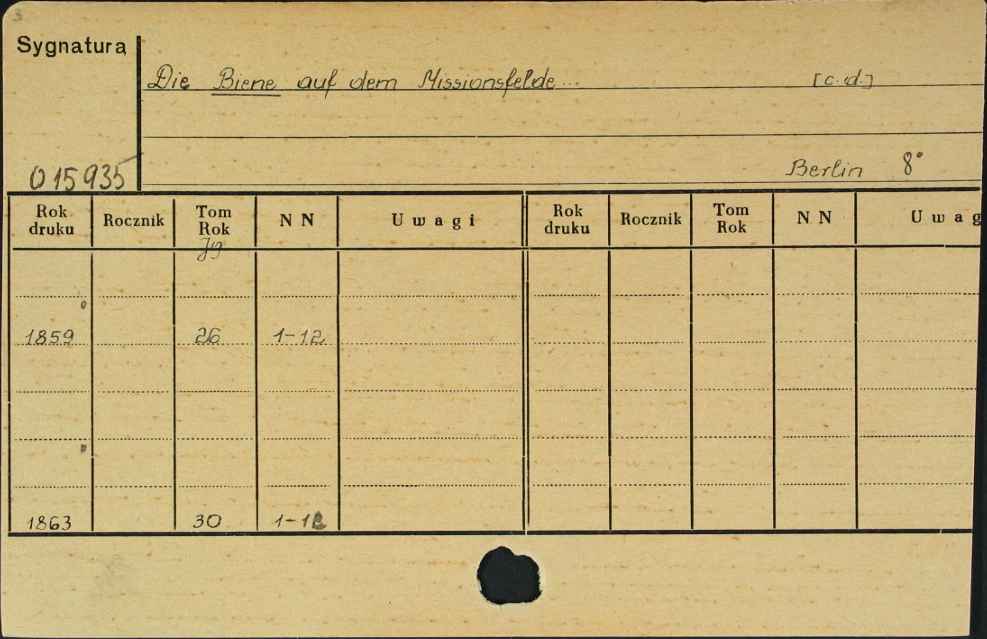 3
Sygnatura
Die Biene auf dem Missionsfelde... [c.d.]
015935
Berlin 8°
Rok druku Rocznik Tom Rok NN Uwagi Rok druku Rocznik Tom Rok NN Uwag
Jg
1859 26 1-12
1863 30 1-12